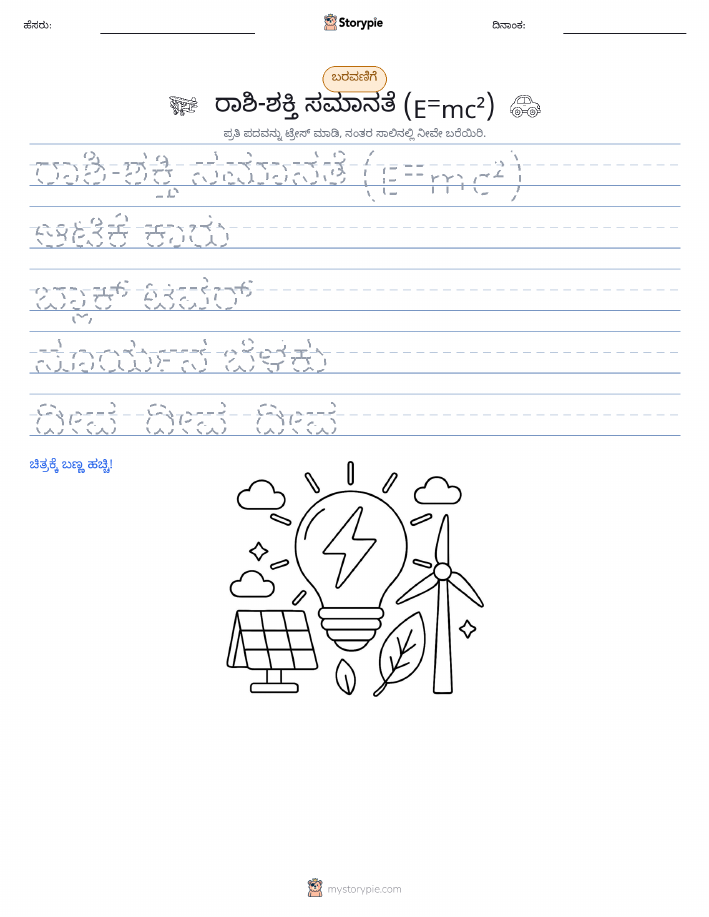 ಹೆಸರು:
Storypie
ದಿನಾಂಕ:
ಬರವಣಿಗೆ
ರಾಶಿ-ಶಕ್ತಿ ಸಮಾನತೆ (E=mc²)
ಪ್ರತಿ ಪದವನ್ನು ಟ್ರೇಸ್ ಮಾಡಿ, ನಂತರ ಸಾಲಿನಲ್ಲಿ ನೀವೇ ಬರೆಯಿರಿ.
ರಾಶಿ-ಶಕ್ತಿ ಸಮಾನತೆ (E=mc²)
ಆಟಿಕೆ ಕಾರು
ಬ್ಲಾಕ್ ಟವರ್
ಸೂರ್ಯನ ಬೆಳಕು
ದೀಪ ದೀಪ ದೀಪ
ಚಿತ್ರಕ್ಕೆ ಬಣ್ಣ ಹಚ್ಚಿ!
mystorypie.com